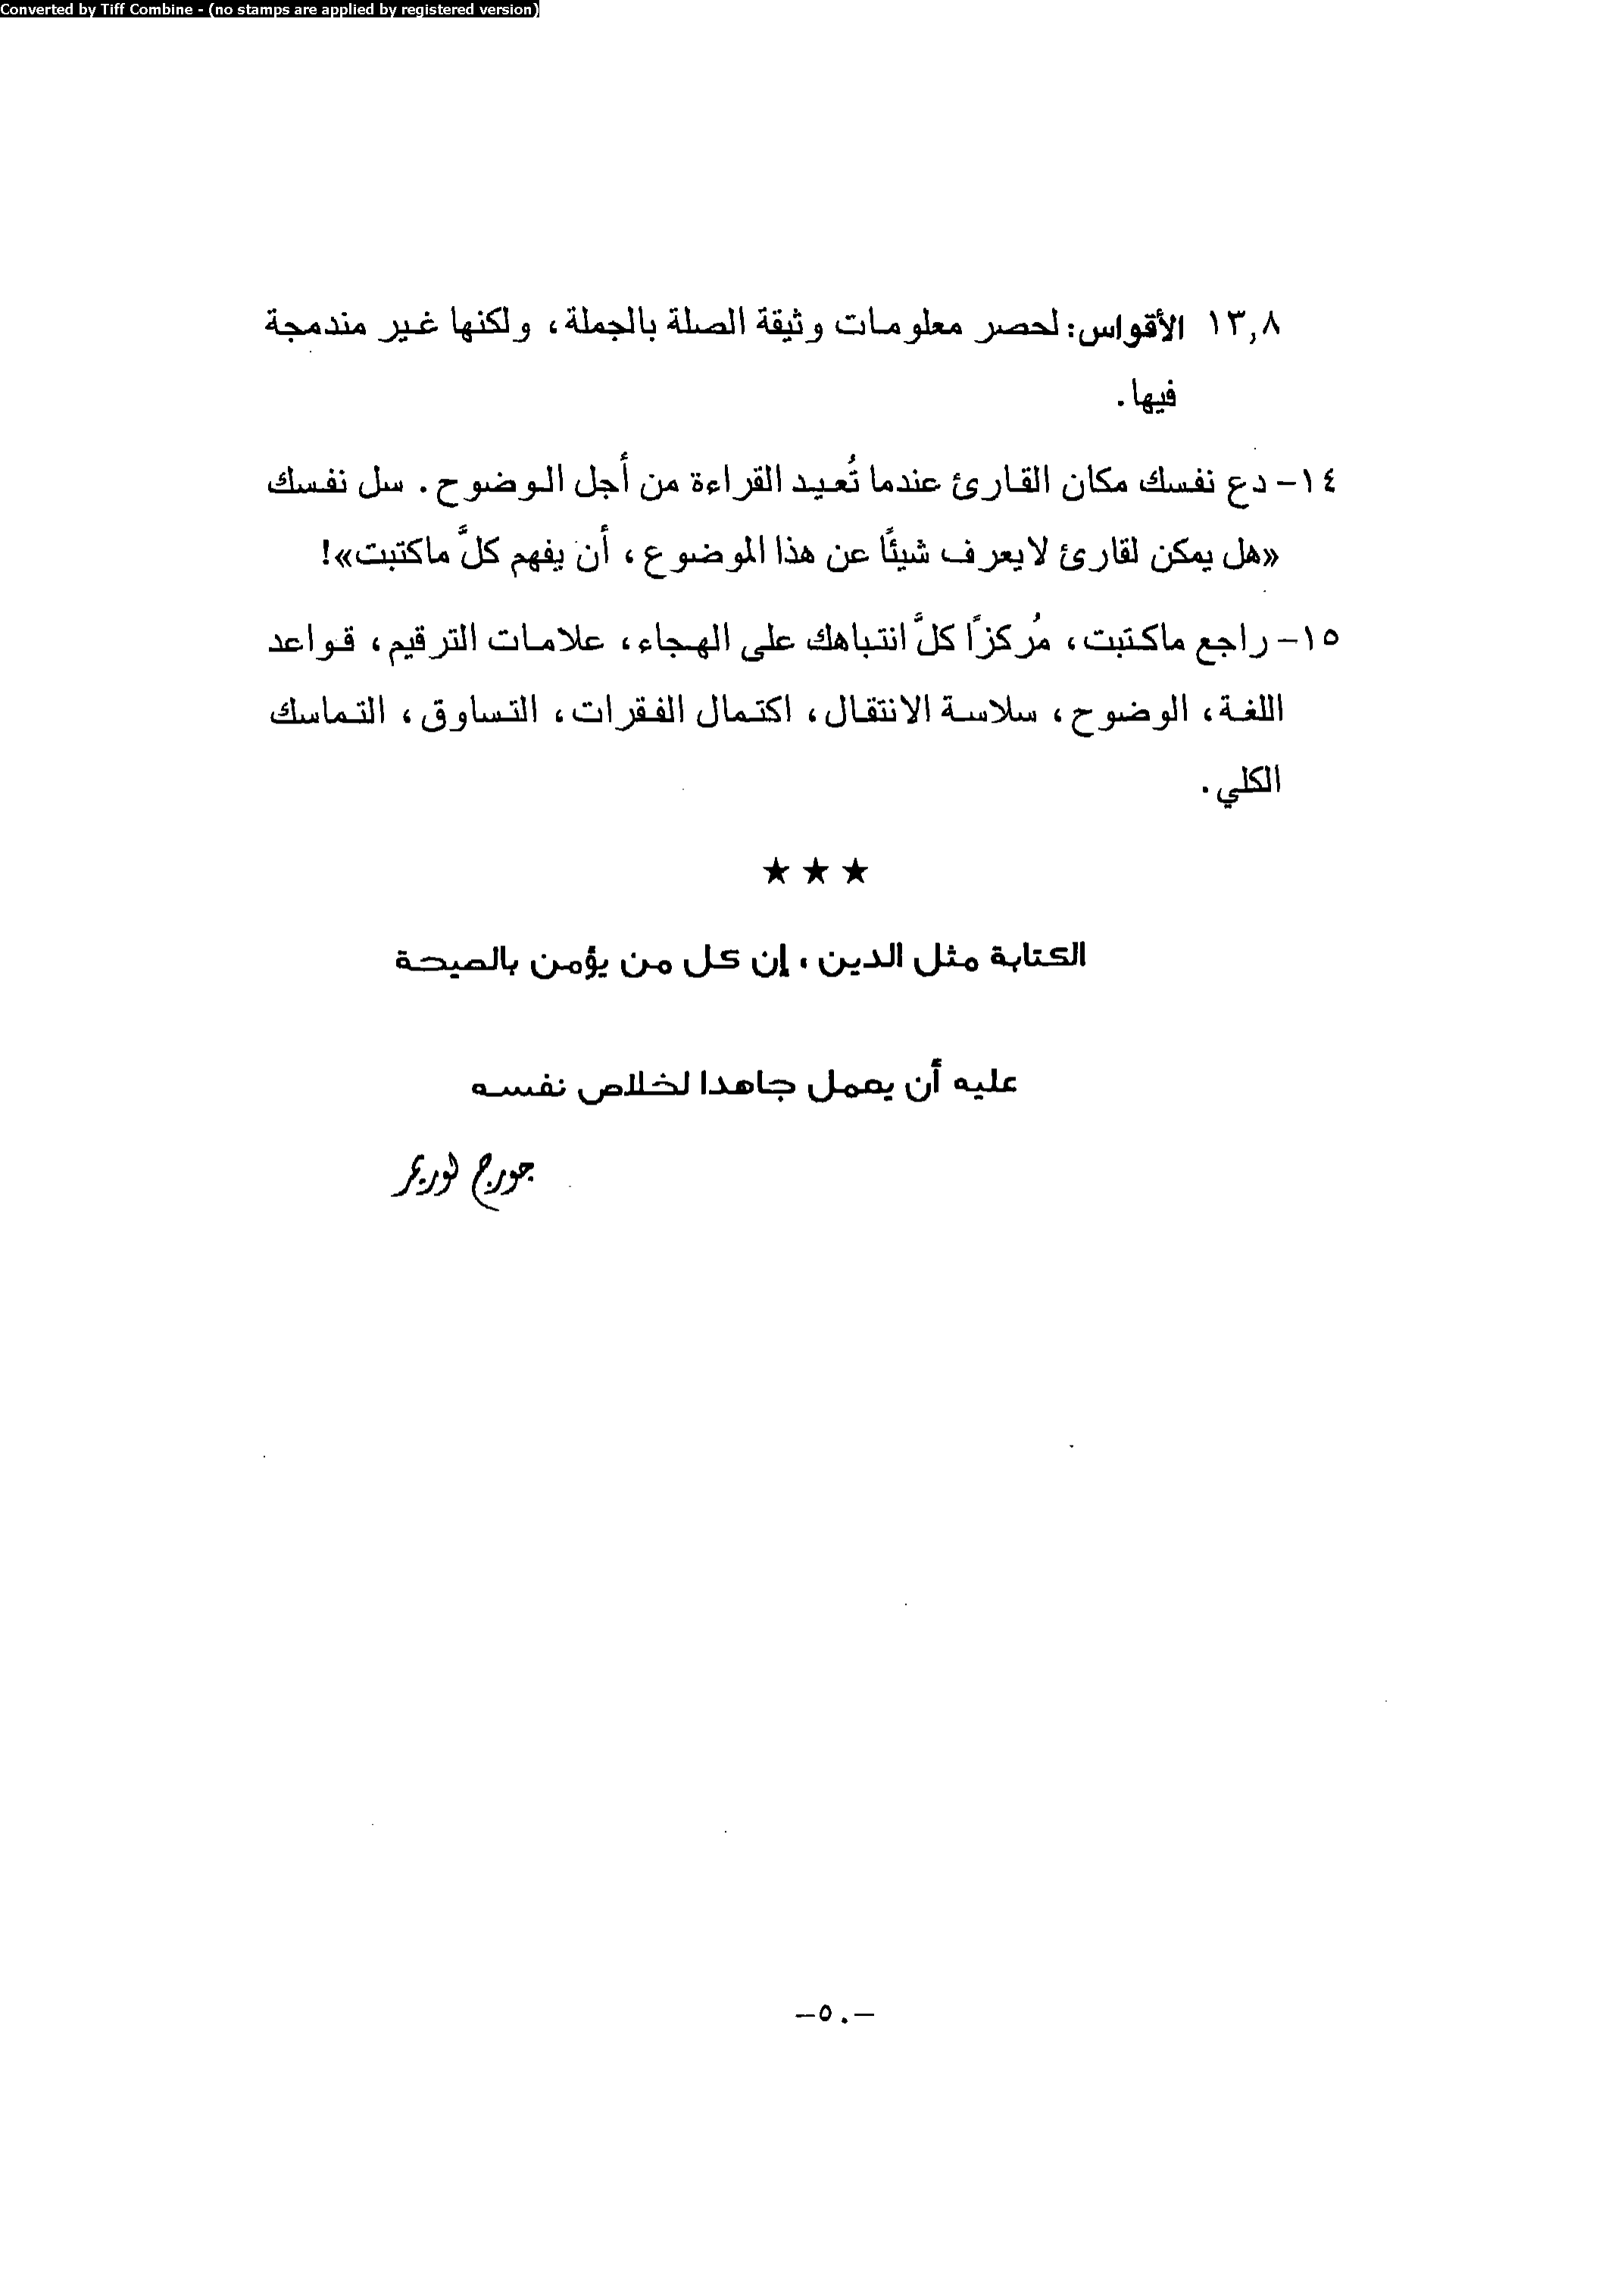 Converted by Tiff Combine - (no stamps are applied by registered version)
١٣,٨ الأقواس: لحصر معلومات وثيقة الصلة بالجملة، ولكنها غير مندمجة
فيها.
١٤- دع نفسك مكان القارئ عندما تُعيد القراءة من أجل الوضوح. سل نفسك
«هل يمكن لقارئ لايعرف شيئًا عن هذا الموضوع، أن يفهم كلَّ ماكتبت»!
١٥- راجع ماكتبت، مُركزًا كلَّ انتباهك على الهجاء، علامات الترقيم، قواعد
اللغة، الوضوح، سلاسة الانتقال، اكتمال الفقرات، التساوق، التماسك
الكلي.
★ ★ ★
الكتابة مثل الدين، إن كل من يؤمن بالصيحة
عليه أن يعمل جاهدا لخلاص نفسه
جورج لوريمر
-٥٠-